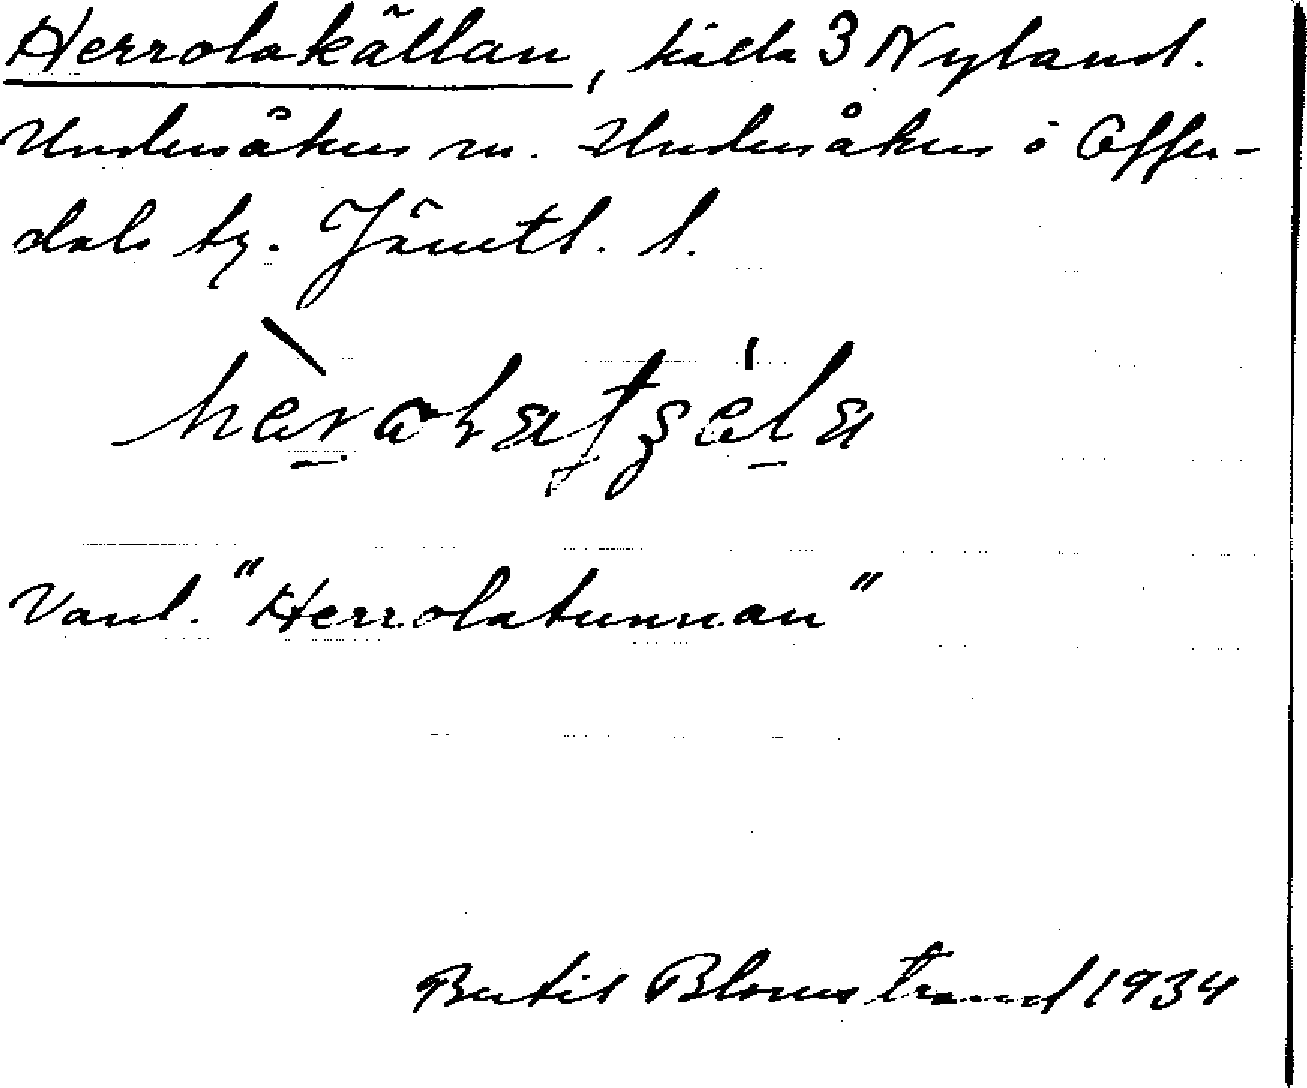 Herrolakällan, källa 3 Nyland.
Undersåkers sn. Undersåkers o Offer-
dals tg. Jämtl. l.
Vanl. "Herrolatunnan"
Bertil Blomstrand 1934